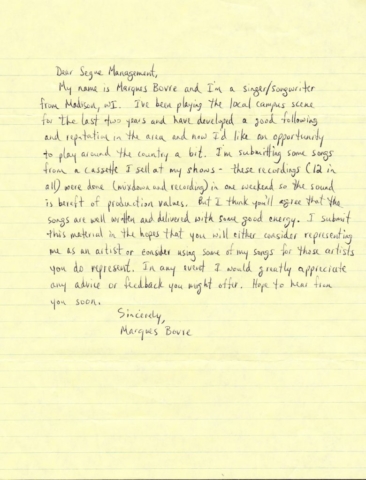 Dear Segue Management,
My name is Marques Bovre and I'm a singer/songwriter
from Madison, WI. I've been playing the local campus scene
for the last two years and have developed a good following
and reputation in the area and now I'd like an opportunity
to play around the country a bit. I'm submitting some songs
from a cassette I sell at my shows - these recordings (12 in
all) were done (mixdown and recording) in one weekend so the sound
is bereft of production values. But I think you'll agree that the
songs are well written and delivered with some good energy. I submit
this material in the hopes that you will either consider representing
me as an artist or consider using some of my songs for those artists
you do represent. In any event I would greatly appreciate
any advice or feedback you might offer. Hope to hear from
you soon.
Sincerely,
Marques Bovre